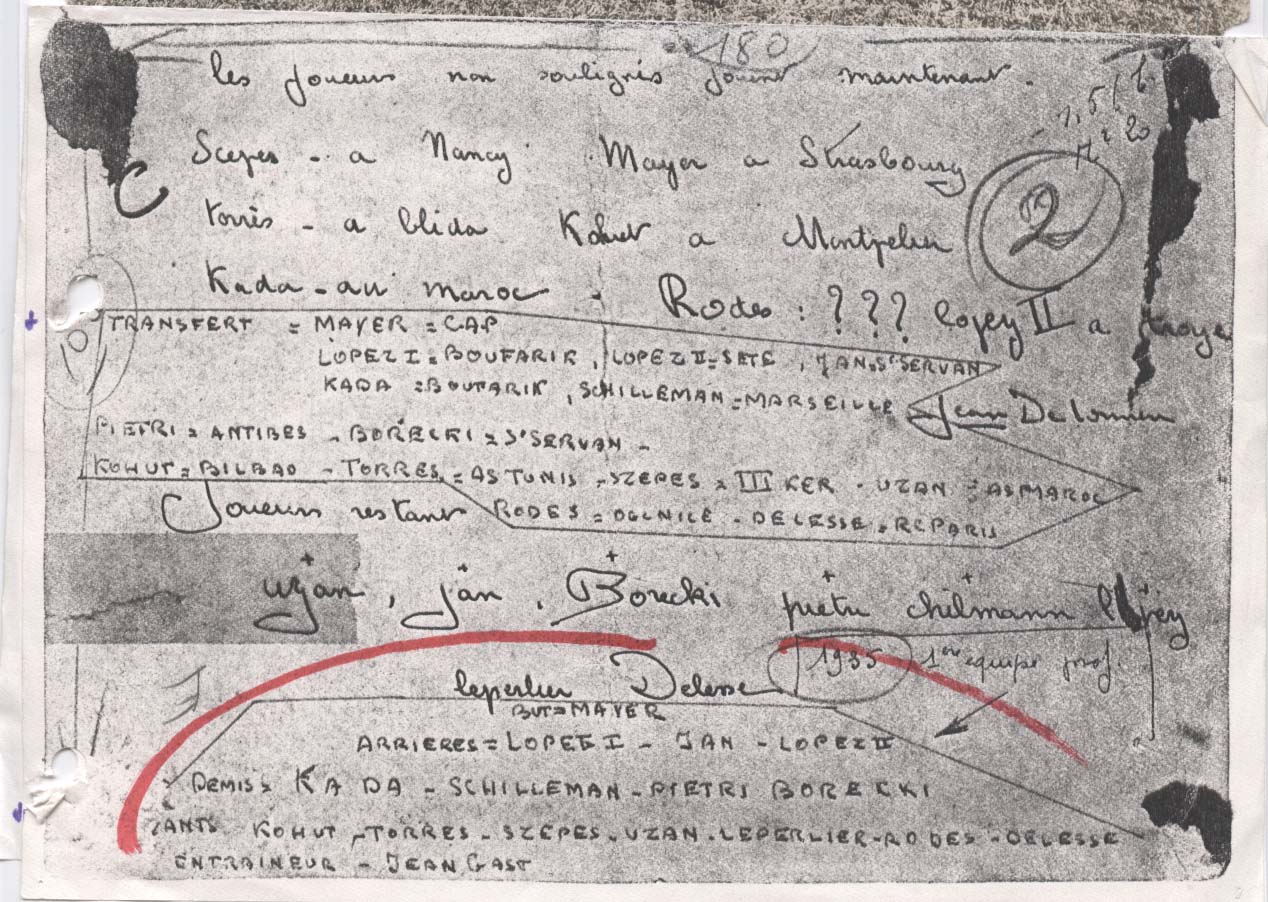 180
les joueurs non soulignés jouent maintenant.
Scepes - a Nancy Mayer a Strasbourg
torrès - a blida Kohut a Montpelier
2
Kada - au maroc - Rodes : ??? lopez II a troye
TRANSFERT = MAYER = CAP
LOPEZ I = BOUFARIK, LOPEZ II = SETE, JAN = St SERVAN
KADA = BOUFARIK, SCHILLEMAN = MARSEILLE
Jean
PIETRI = ANTIBES - BORECKI = St SERVAN -
KOHUT = BILBAO - TORRES = AS TUNIS - SZEPES = III KER - UZAN = AS MAROC
Joueurs restant RODES = - DELESSE = RC PARIS
uzan, jan, Borecki pietri chilmann
leperlier Delesse 1935 1ère equipe prof.
BUT = MAYER
ARRIERES = LOPEZ I - JAN - LOPEZ II
DEMIS = KADA - SCHILLEMAN - PIETRI BORECKI
ANTS KOHUT - TORRES - SZEPES - UZAN - LEPERLIER - RODES - DELESSE
ENTRAINEUR - JEAN GAST